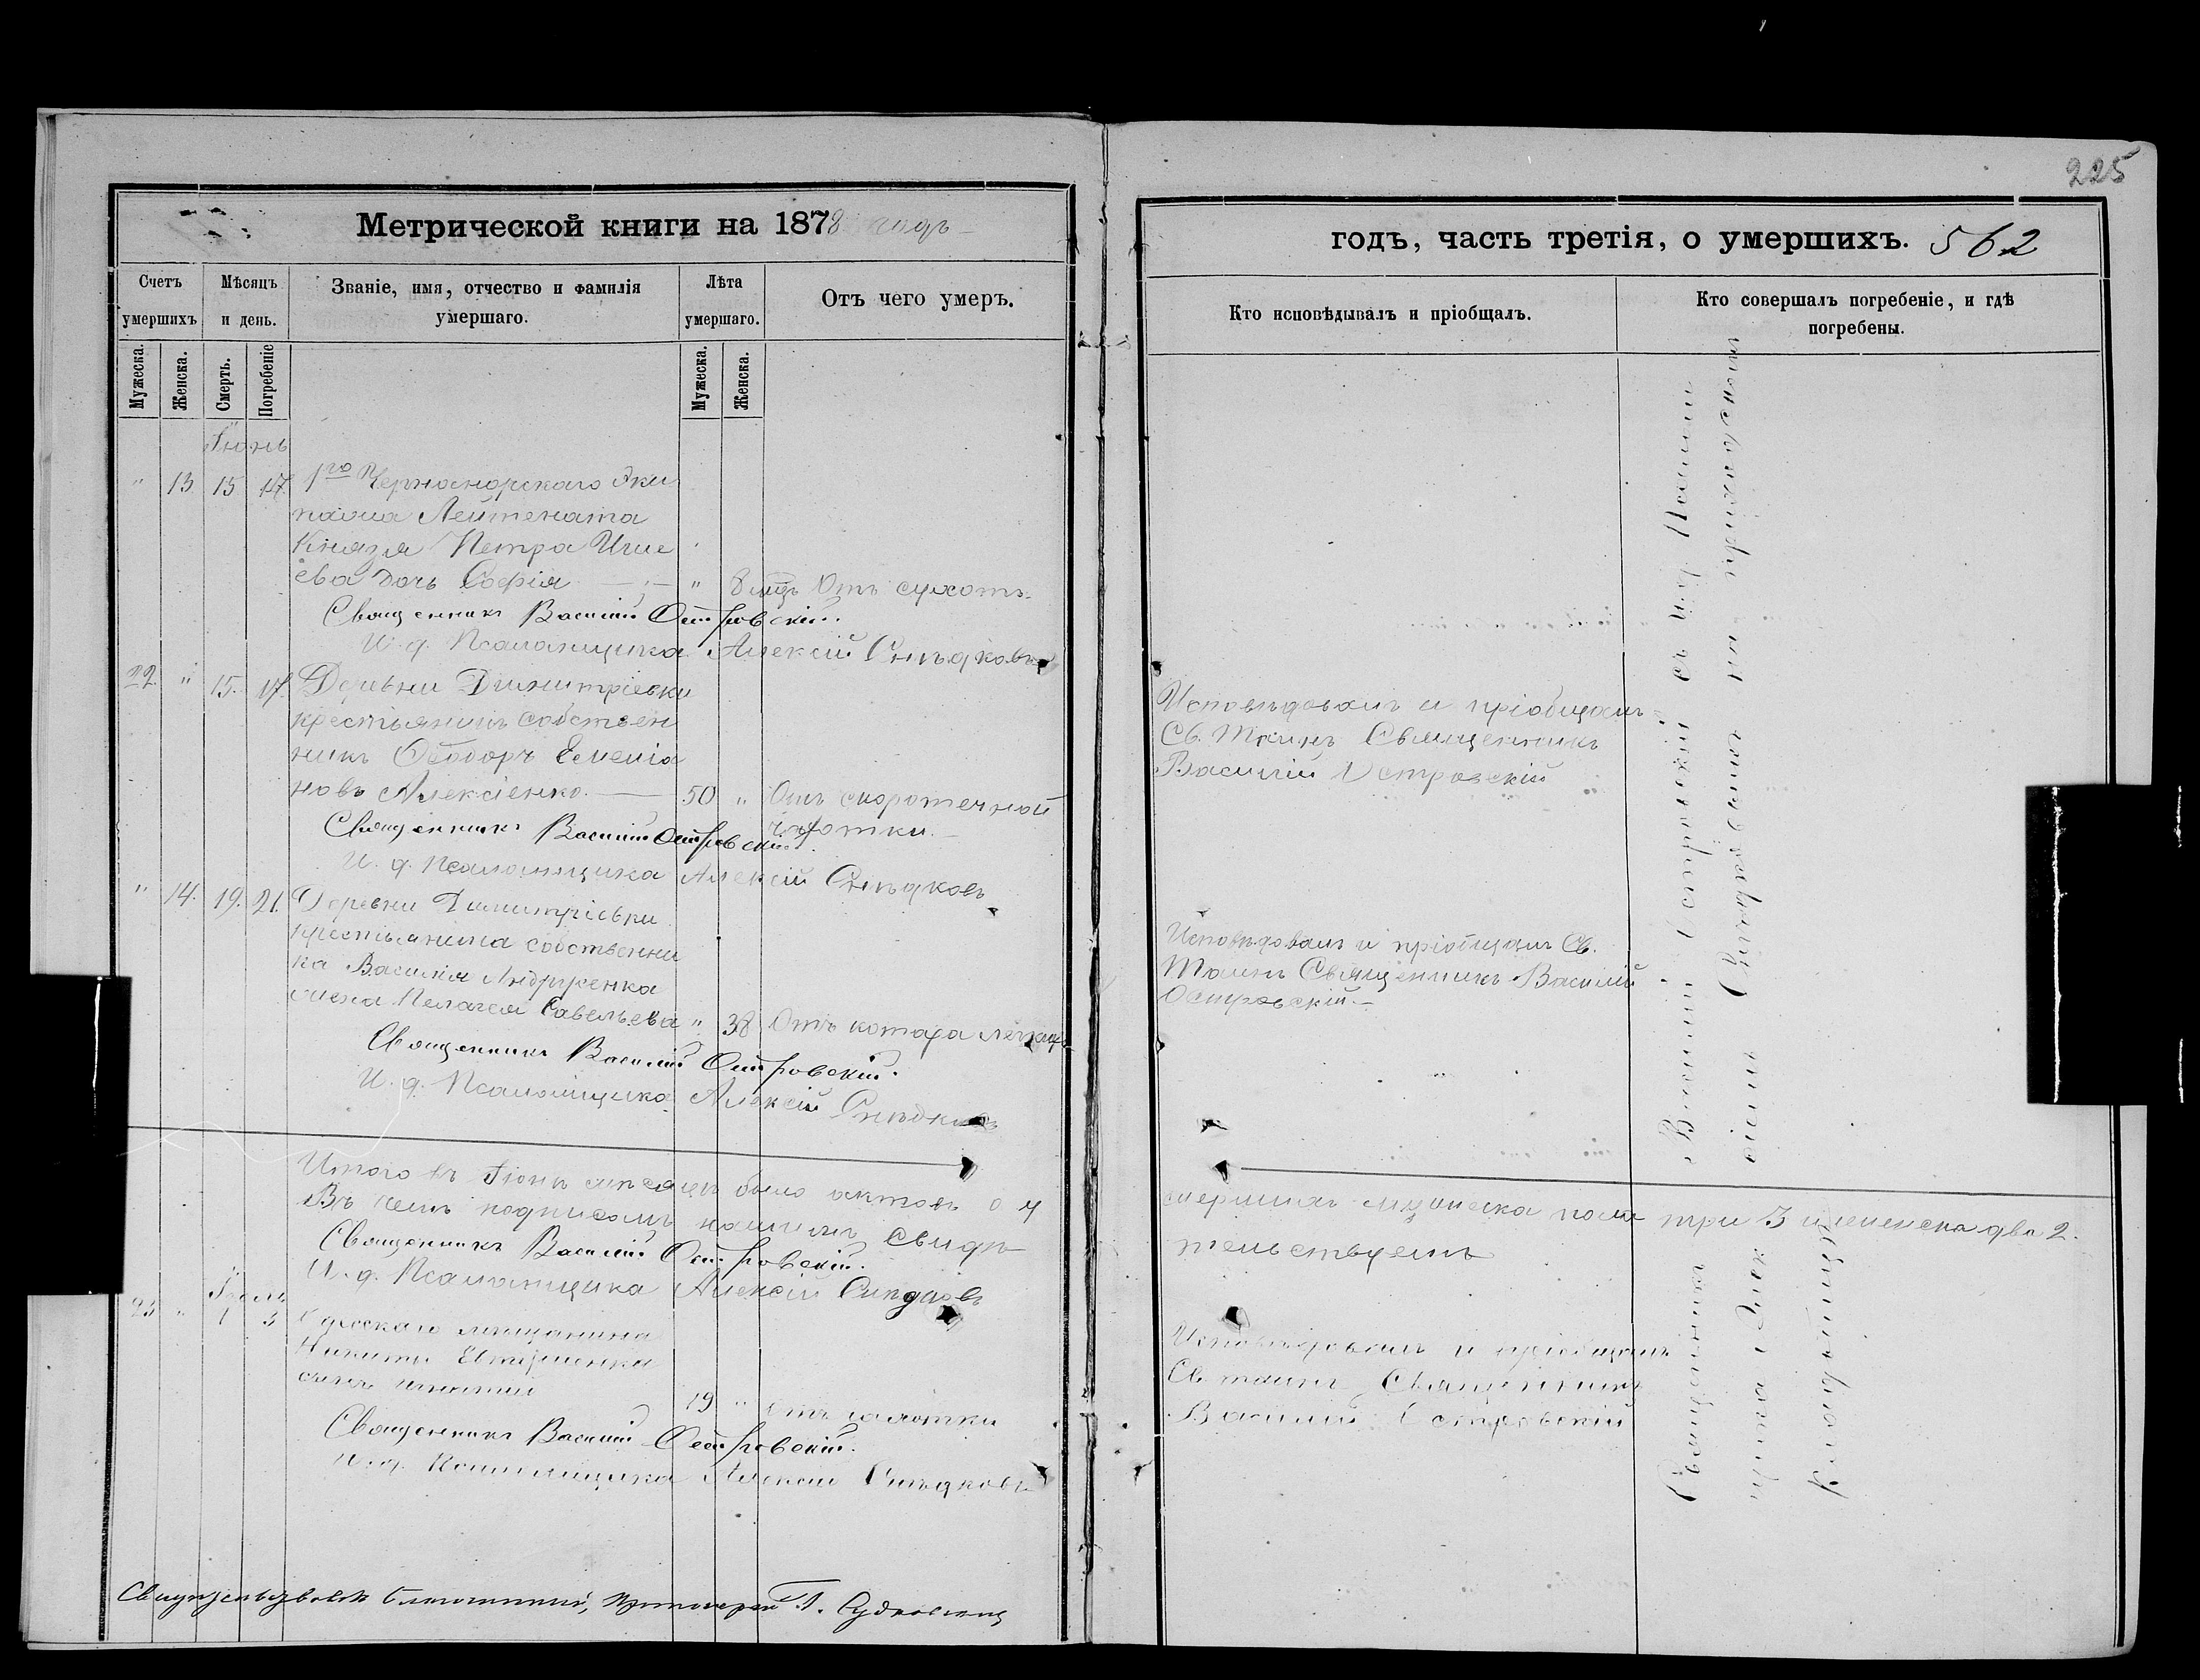 225
Метрической книги на 1878 годъ
годъ, часть третія, о умершихъ. 562
Счетъ умершихъ
Мѣсяцъ и день.
Званіе, имя, отчество и фамилія умершаго.
Лѣта умершаго.
Отъ чего умеръ.
Кто исповѣдывалъ и пріобщалъ.
Кто совершалъ погребеніе, и гдѣ погребены.
Мужеска.
Женска.
Смерть.
Погребеніе
Мужеска.
Женска.
Іюнь
" 13 15 17 1го Черноморскаго эки
пажа Лейтената
Князя Петра
ева дочь Софія " 8 мцъ Отъ сухотъ
Священникъ Василій Островскій.
И. д. Псаломщика Алексій Снѣдковъ
22 " 15. 17 Деревни Димитріевки
крестьянинъ собствен
никъ Ѳеодоръ Емелія
новъ Алексіенко 50 " Отъ скоротечной
чахотки.
Священникъ Василій Островскій.
И. д. Псаломщика Алексій Снѣдковъ
Исповѣдовалъ и пріобщалъ
Св. Таинъ Священникъ
Василій Островскій
" 14. 19. 21. Деревни Димитріевки
крестьянина собственни
ка Василія Андрущенка
жена Пелагея Савельева " 38 Отъ катара легкихъ
Священникъ Василій Островскій.
И. д. Псаломщика Алексій Снѣдковъ
Исповѣдовалъ и пріобщалъ Св.
Таинъ Священникъ Василій
Островскій.
Итого въ Іюнѣ мѣсяцѣ было актовъ о у
мершихъ мужеска пола три 3 и женска два 2.
Въ чемъ подписомъ нашимъ свидѣ
тельствуемъ
Священникъ Василій Островскій.
И. д. Псаломщика Алексій Снѣдковъ
Іюль
23 " 1 3 Одесскаго мещанина
Никиты
сынъ 19 " отъ чахотки
Священникъ Василій Островскій.
И. д. Псаломщика Алексій Снѣдковъ
Исповѣдовалъ и пріобщалъ
Св. таинъ Священникъ
Василій Островскій
Священникъ Василій Островскій съ и. д. Псалом
щика Алексіемъ Снѣдковымъ на приходскомъ
кладбищѣ
Свидѣтельствовалъ Благочинный, Протоіерей Г. Судковскій